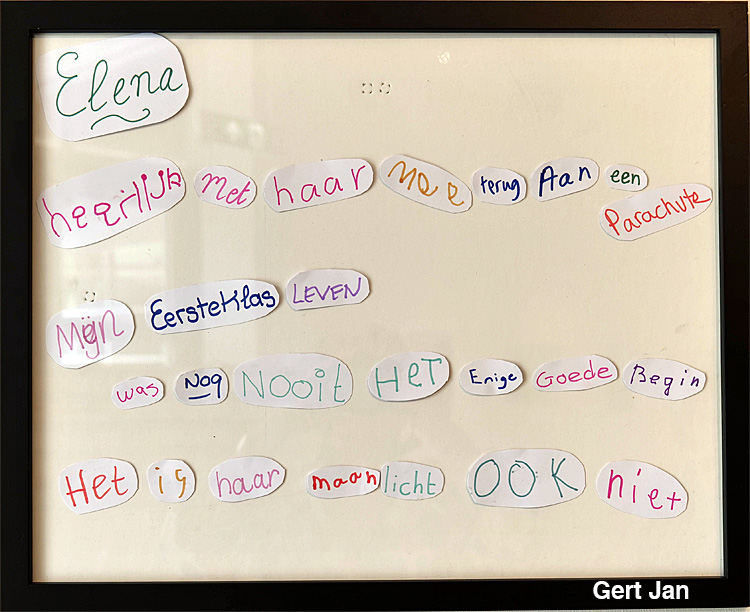 Elena
heerlijk met haar mee terug Aan een
Parachute
Mijn EersteKlas LEVEN
was NOg NOOit HeT Enige Goede Begin
Het is haar maanlicht OOK niet
Gert Jan